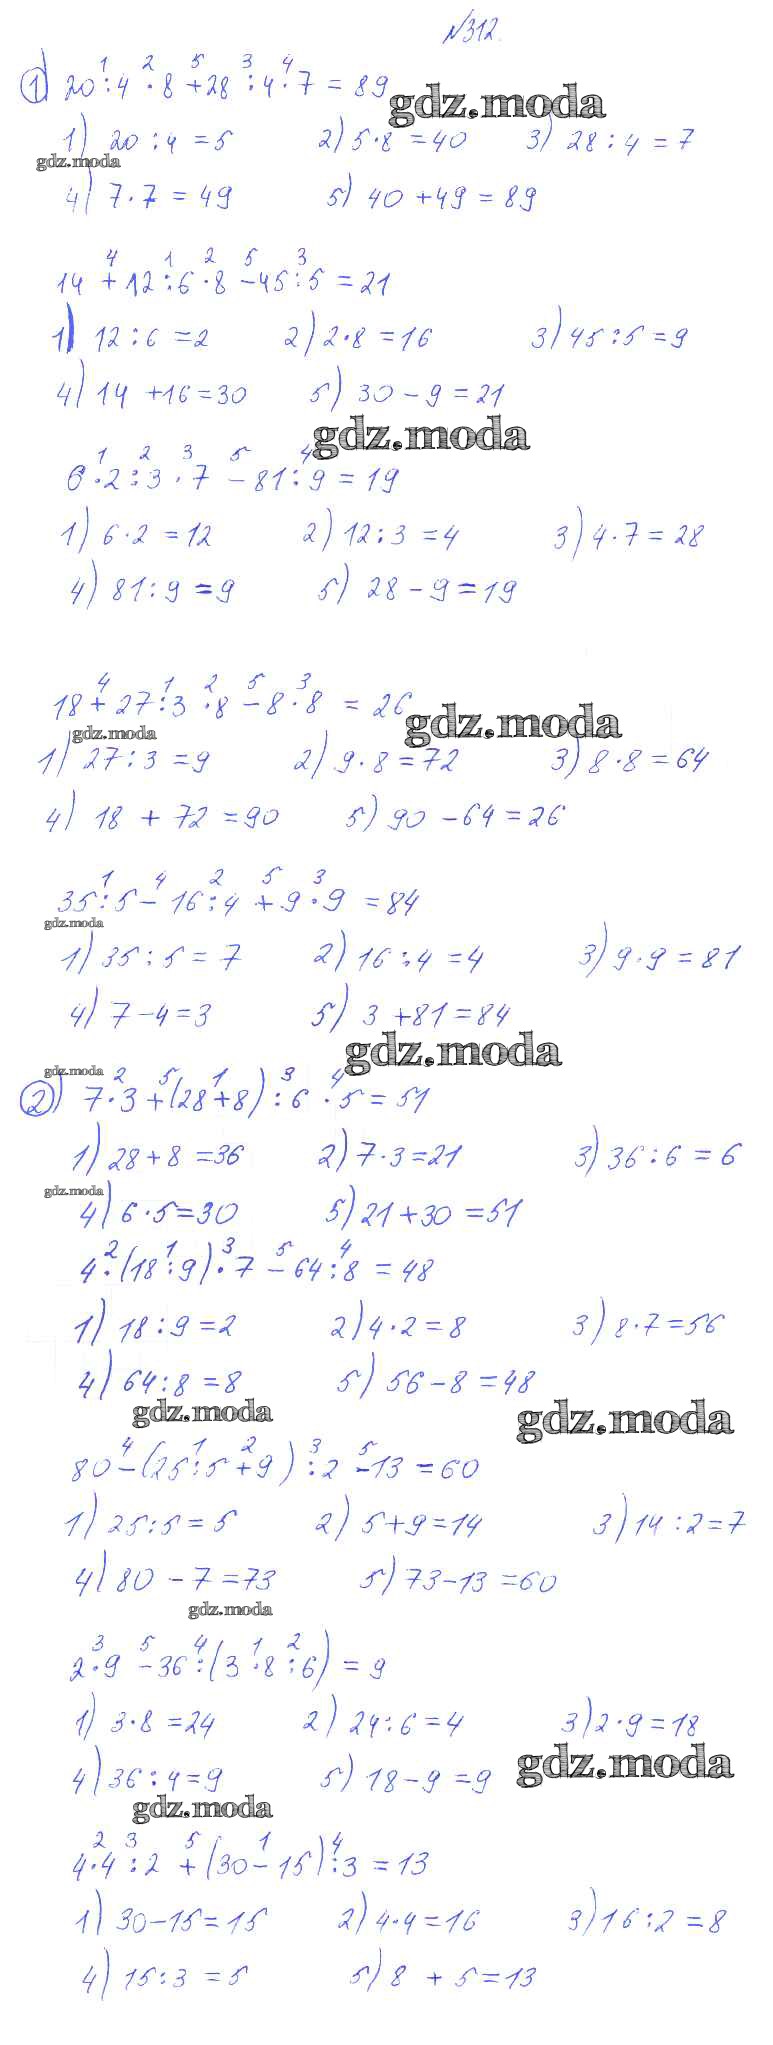 №312.
1) 20:4·8+28:4·7=89
1 2 5 3 4
gdz.moda
1) 20:4=5 2) 5·8=40 3) 28:4=7
gdz.moda
4) 7·7=49 5) 40+49=89
4 1 2 5 3
14+12:6·8-45:5=21
1) 12:6=2 2) 2·8=16 3) 45:5=9
4) 14+16=30 5) 30-9=21
gdz.moda
1 2 3 5 4
6·2:3·7-81:9=19
1) 6·2=12 2) 12:3=4 3) 4·7=28
4) 81:9=9 5) 28-9=19
4 1 2 5 3
18+27:3·8-8·8=26
gdz.moda
gdz.moda
1) 27:3=9 2) 9·8=72 3) 8·8=64
4) 18+72=90 5) 90-64=26
1 4 2 5 3
35:5-16:4+9·9=84
gdz.moda
1) 35:5=7 2) 16:4=4 3) 9·9=81
4) 7-4=3 5) 3+81=84
gdz.moda
gdz.moda
2 5 1 3 4
2) 7·3+(28+8):6·5=51
1) 28+8=36 2) 7·3=21 3) 36:6=6
gdz.moda
4) 6·5=30 5) 21+30=51
2 1 3 5 4
4·(18:9)·7-64:8=48
1) 18:9=2 2) 4·2=8 3) 8·7=56
4) 64:8=8 5) 56-8=48
gdz.moda
gdz.moda
4 1 2 3 5
80-(25:5+9):2-13=60
1) 25:5=5 2) 5+9=14 3) 14:2=7
4) 80-7=73 5) 73-13=60
gdz.moda
3 5 4 1 2
2·9-36:(3·8:6)=9
1) 3·8=24 2) 24:6=4 3) 2·9=18
4) 36:4=9 5) 18-9=9
gdz.moda
gdz.moda
2 3 5 1 4
4·4:2+(30-15):3=13
1) 30-15=15 2) 4·4=16 3) 16:2=8
4) 15:3=5 5) 8+5=13